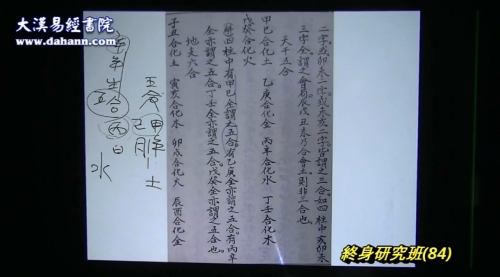 大漢易經書院
www.dahann.com
二字或卯未二字或未亥二字皆謂之三合。如四柱中亥卯未
三字全謂之會局。辰戌丑未乃合會土則非三合也。
天干五合
甲己合化土 乙庚合化金 丙辛合化水 丁壬合化木
戊癸合化火
四柱中有甲己全謂之五合。有乙庚全亦謂之五合。有丙辛
全亦謂之五合。丁壬全亦謂之五合。戊癸全亦謂之五合也。
地支六合
子丑合化土 寅亥合化木 卯戌合化火 辰酉合化金
五合
甲
己
脾
土
年生
五合
丙日
水
終身研究班(84)